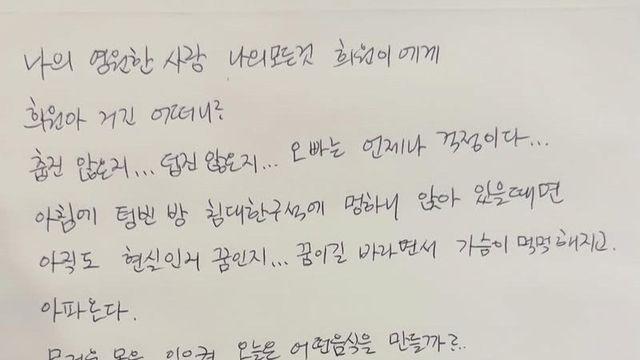 나의 영원한 사랑 나의모든것 희원이에게
희원아 거긴 어떠니?
춥진 않은지... 덥진않은지... 오빠는 언제나 걱정이다...
아침에 텅빈 방 침대한구석에 멍하니 앉아 있을때면
아직도 현실인지 꿈인지... 꿈이길 바라면서 가슴이 먹먹해지고.
아파온다.
무거운 몸을 일으켜 오늘은 어떤음식을 만들까?..